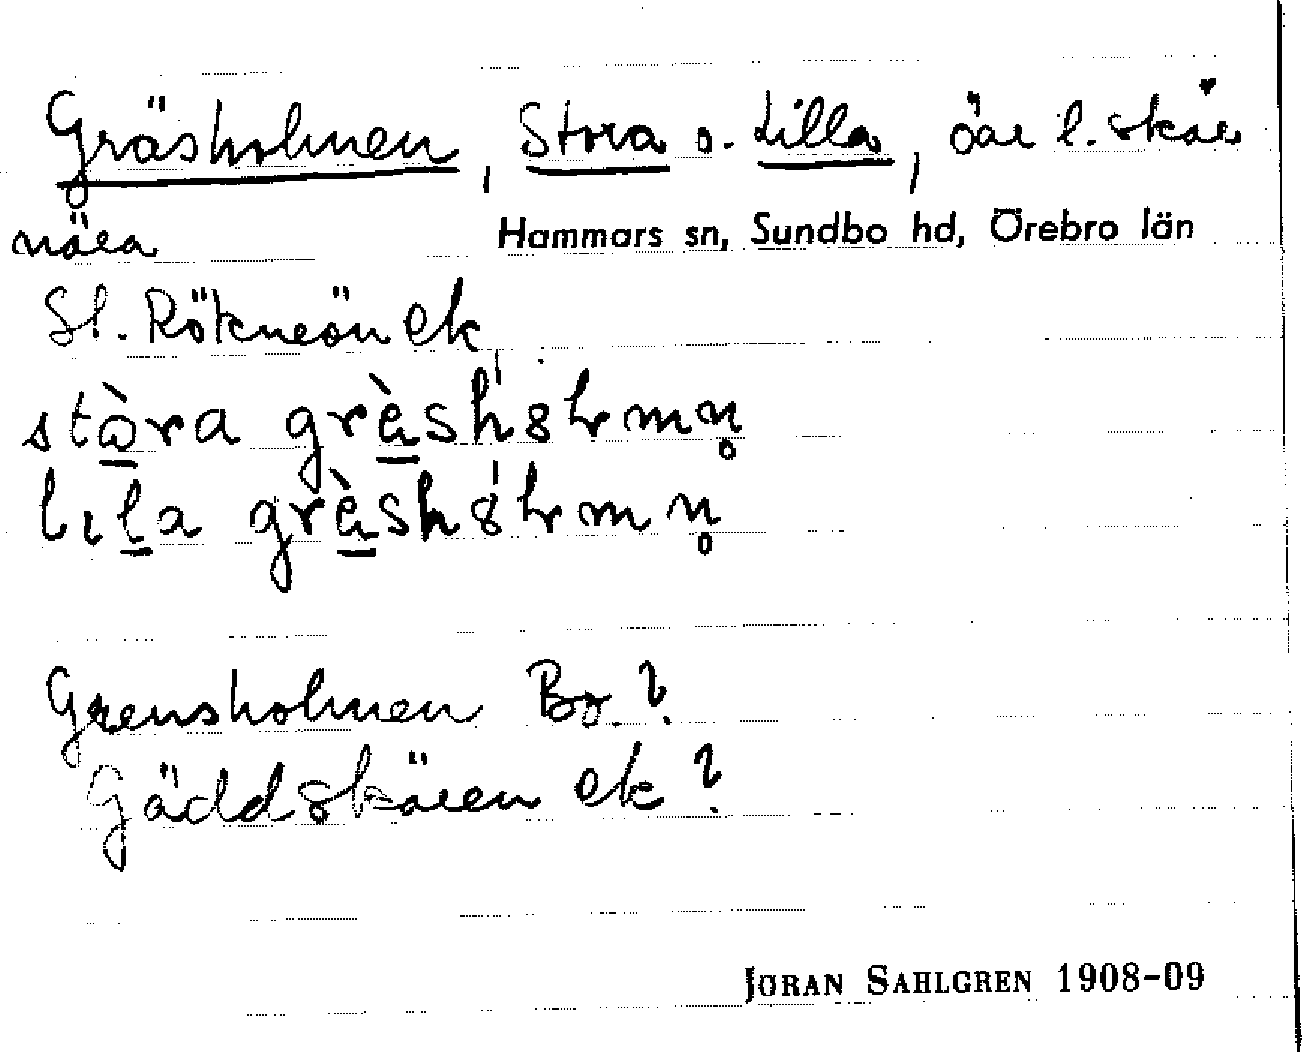 Gräsholmen, Stora o. Lilla, öar l. skär
nära Hammars sn, Sundbo hd, Örebro län
St. Rökneön ek
stòra grèsh8lmn̥
lıla grèsh8lmn̥
Grensholmen Bo.?
Gäddskären ek?
JÖRAN SAHLGREN 1908-09